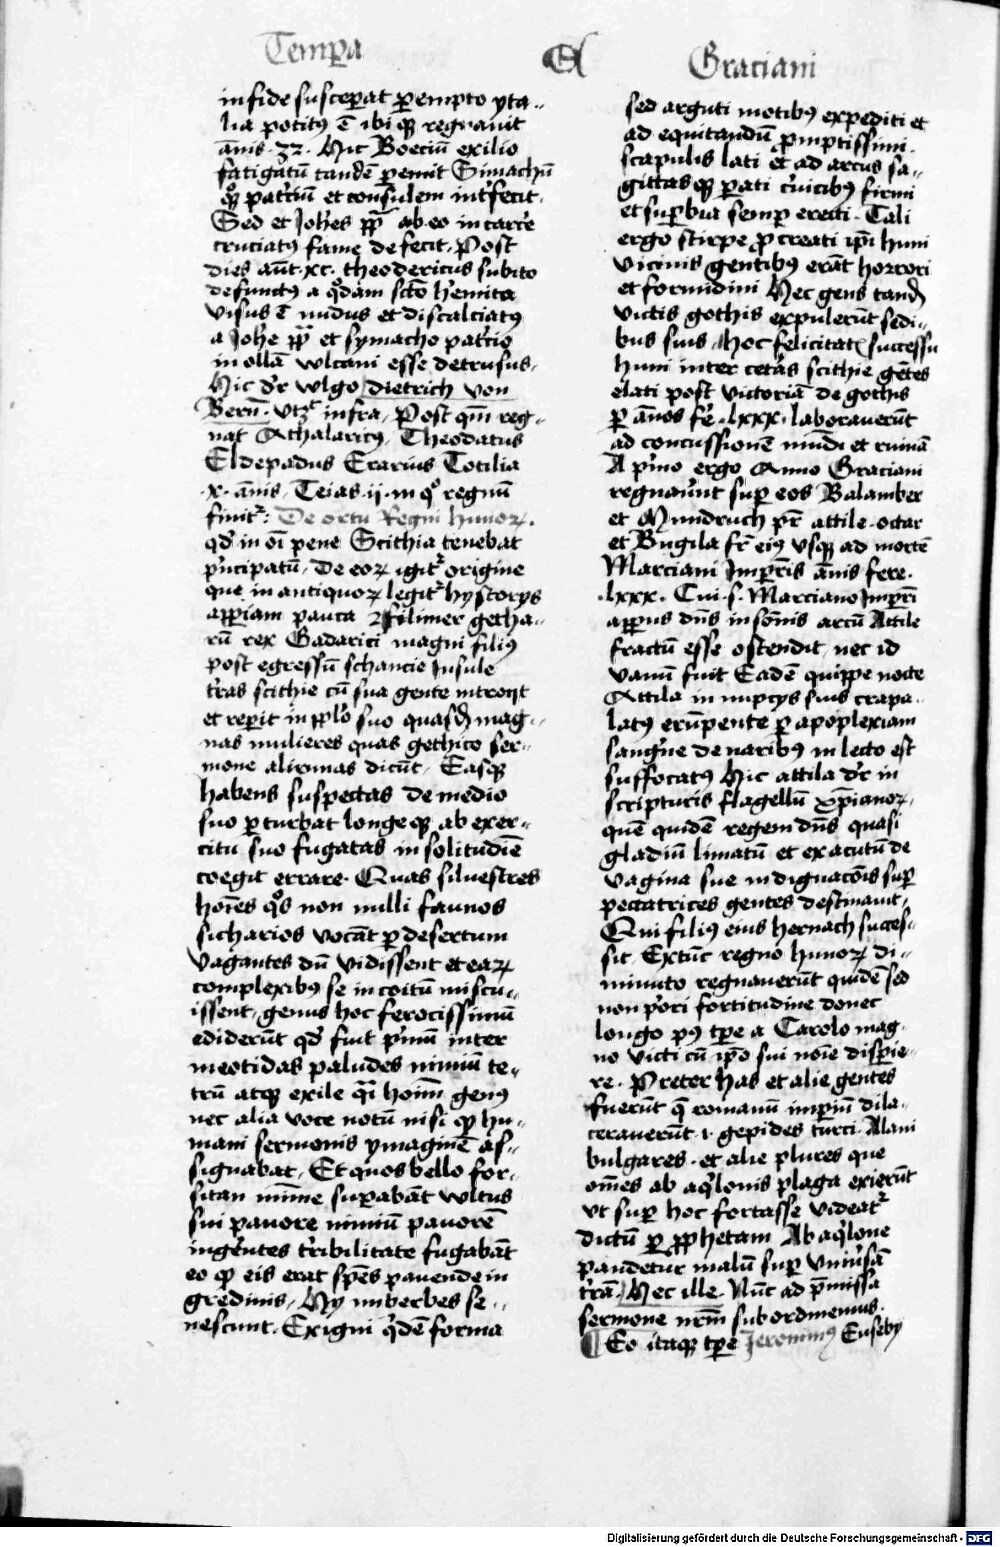 Tempora
Graciani
in fide susceperat perempto yta-
lia potitus ē ibi que regnauit
ānis .32. Hic Boeciū exilio
fatigatū tandē peremit Simachū
quoque patriciū et consulem interfecit.
Sed et Johes pp ab eo in carcere
cruciatus fame defecit. Post
dies aūt .xc. theodericus subito
defunctus a quodam sctō heremita
visus ē nudus et discalciatus
a Johe pp et symacho patricio
in ollā wlcani esse detrusus.
Hic dr wlgo dietrich von
Bern. vtz infra. Post quem reg-
nat Athalaricus, Theodatus
Eldepadus Erarius Totilia
.x. ānis, Teias .ij. in quo regnū
finitr: De ortu Regni hunorum.
qd in oī pene Scithia tenebat
principatū. De eorum igitr origine
que in antiquorum legitr hystorijs
appiam pauca Filimer getha-
rū rex Gadarici magni filius
post egressū schancie Insule
terras scithie cū sua gente introijt
et reperit in pplo suo quasdam mag-
nas mulieres quas gethico ser-
mone alirunas dicūt. Easque
habens suspectas de medio
suo perturbat longeque ab exer-
citu suo fugatas in solitudinē
coegit errare. Quas siluestres
hoīes quos non nulli faunos
sicharios vocāt per desertum
vagantes dū vidissent et earum
complexibus se in coitū miscu-
issent, genus hoc ferocissimū
ediderūt qd fuit primū inter
meotidas paludes nimiū te-
trū atque exile quasi hoīm genus
nec alia voce notū nisi que hu-
mani sermonis ymaginē as-
signabat. Et quos bello for-
sitan minime superabāt wltus
sui pauore nimiū pauorē
ingerentes terribilitate fugabāt
eo que eis erat species pauende in
gredinis. Hy imberbes se-
nescunt. Exigui quidem forma
sed arguti motibus expediti et
ad equitandū promptissimi.
scapulis lati et ad arcus sa-
gittasque parati ceruicibus firmi
et superbia semper erecti. Tali
ergo stirpe procreati ipi huni
vicinis gentibus erāt horrori
et formidini Hec gens tandem
victis gothis expulerūt sedi-
bus suis, hoc felicitatis successu
huni inter ceteras scithie gētes
elati post victoriā de gothis
per ānos fere .lxxx. laborauerūt
ad concussionē mūdi et ruinā
A primo ergo Anno Graciani
regnauerūt super eos Balamber
et Mundruch pr attile. octar
et Bugila fr eius vsque ad mortē
Marciani Imperatoris ānis fere.
.lxxx. Cui .s. Marciano Imperatori
apparuns dns in sōnis arcū Attile
fractū esse ostendit, nec id
vanū fuit Eadē quippe nocte
Attila in nupcijs suis crapu-
latus erumpente per apoplexiam
sanguine de naribus in lecto est
suffocatus Hic attila dr in
scripturis flagellū xpianorum,
quē quidē regem dns quasi
gladiū limatū et exacutū de
vagina sue indignacōis super
peccatrices gentes destinauit,
Qui filius eius hernach succes-
sit. Extūc regno hunorum di-
minuto regnauerūt quidē sed
non priori fortitudine donec
longo post tpe a Carolo mag-
no victi cū ipo sui noīe disperie-
re. Preter has et alie gentes
fuerūt que romanū imperiū dila-
cerauerūt .i. gepides turci Alani
bulgares. et alie plures que
omēs ab aquilonis plaga exierūt
vt super hoc fortasse videatr
dictū per prophetam Ab aquilone
pandetur malū super vniuersā
terrā. Hec ille. Nūc ad premissa
sermone nrm subordinemus.
¶ Eo itaque tpe Jeronimus Eusebij